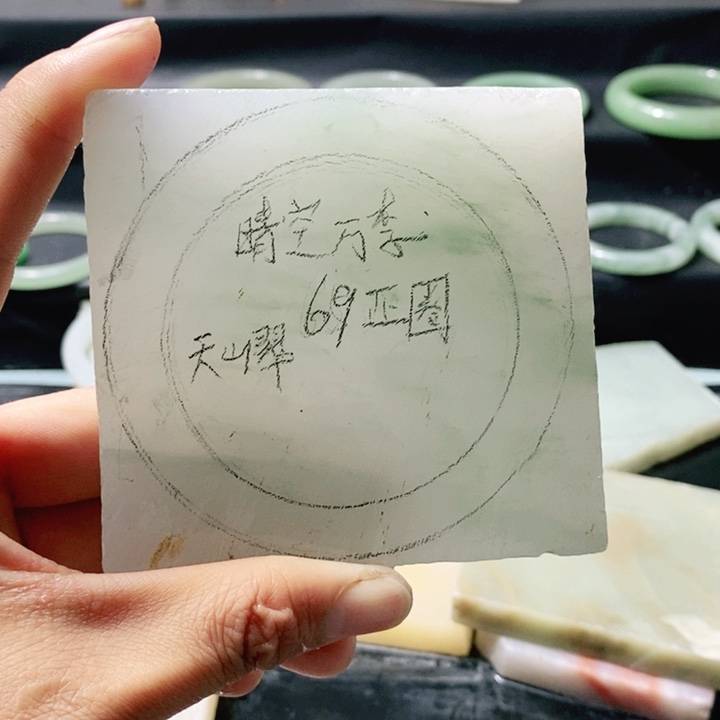 晴空万李
69正圈
天山翠